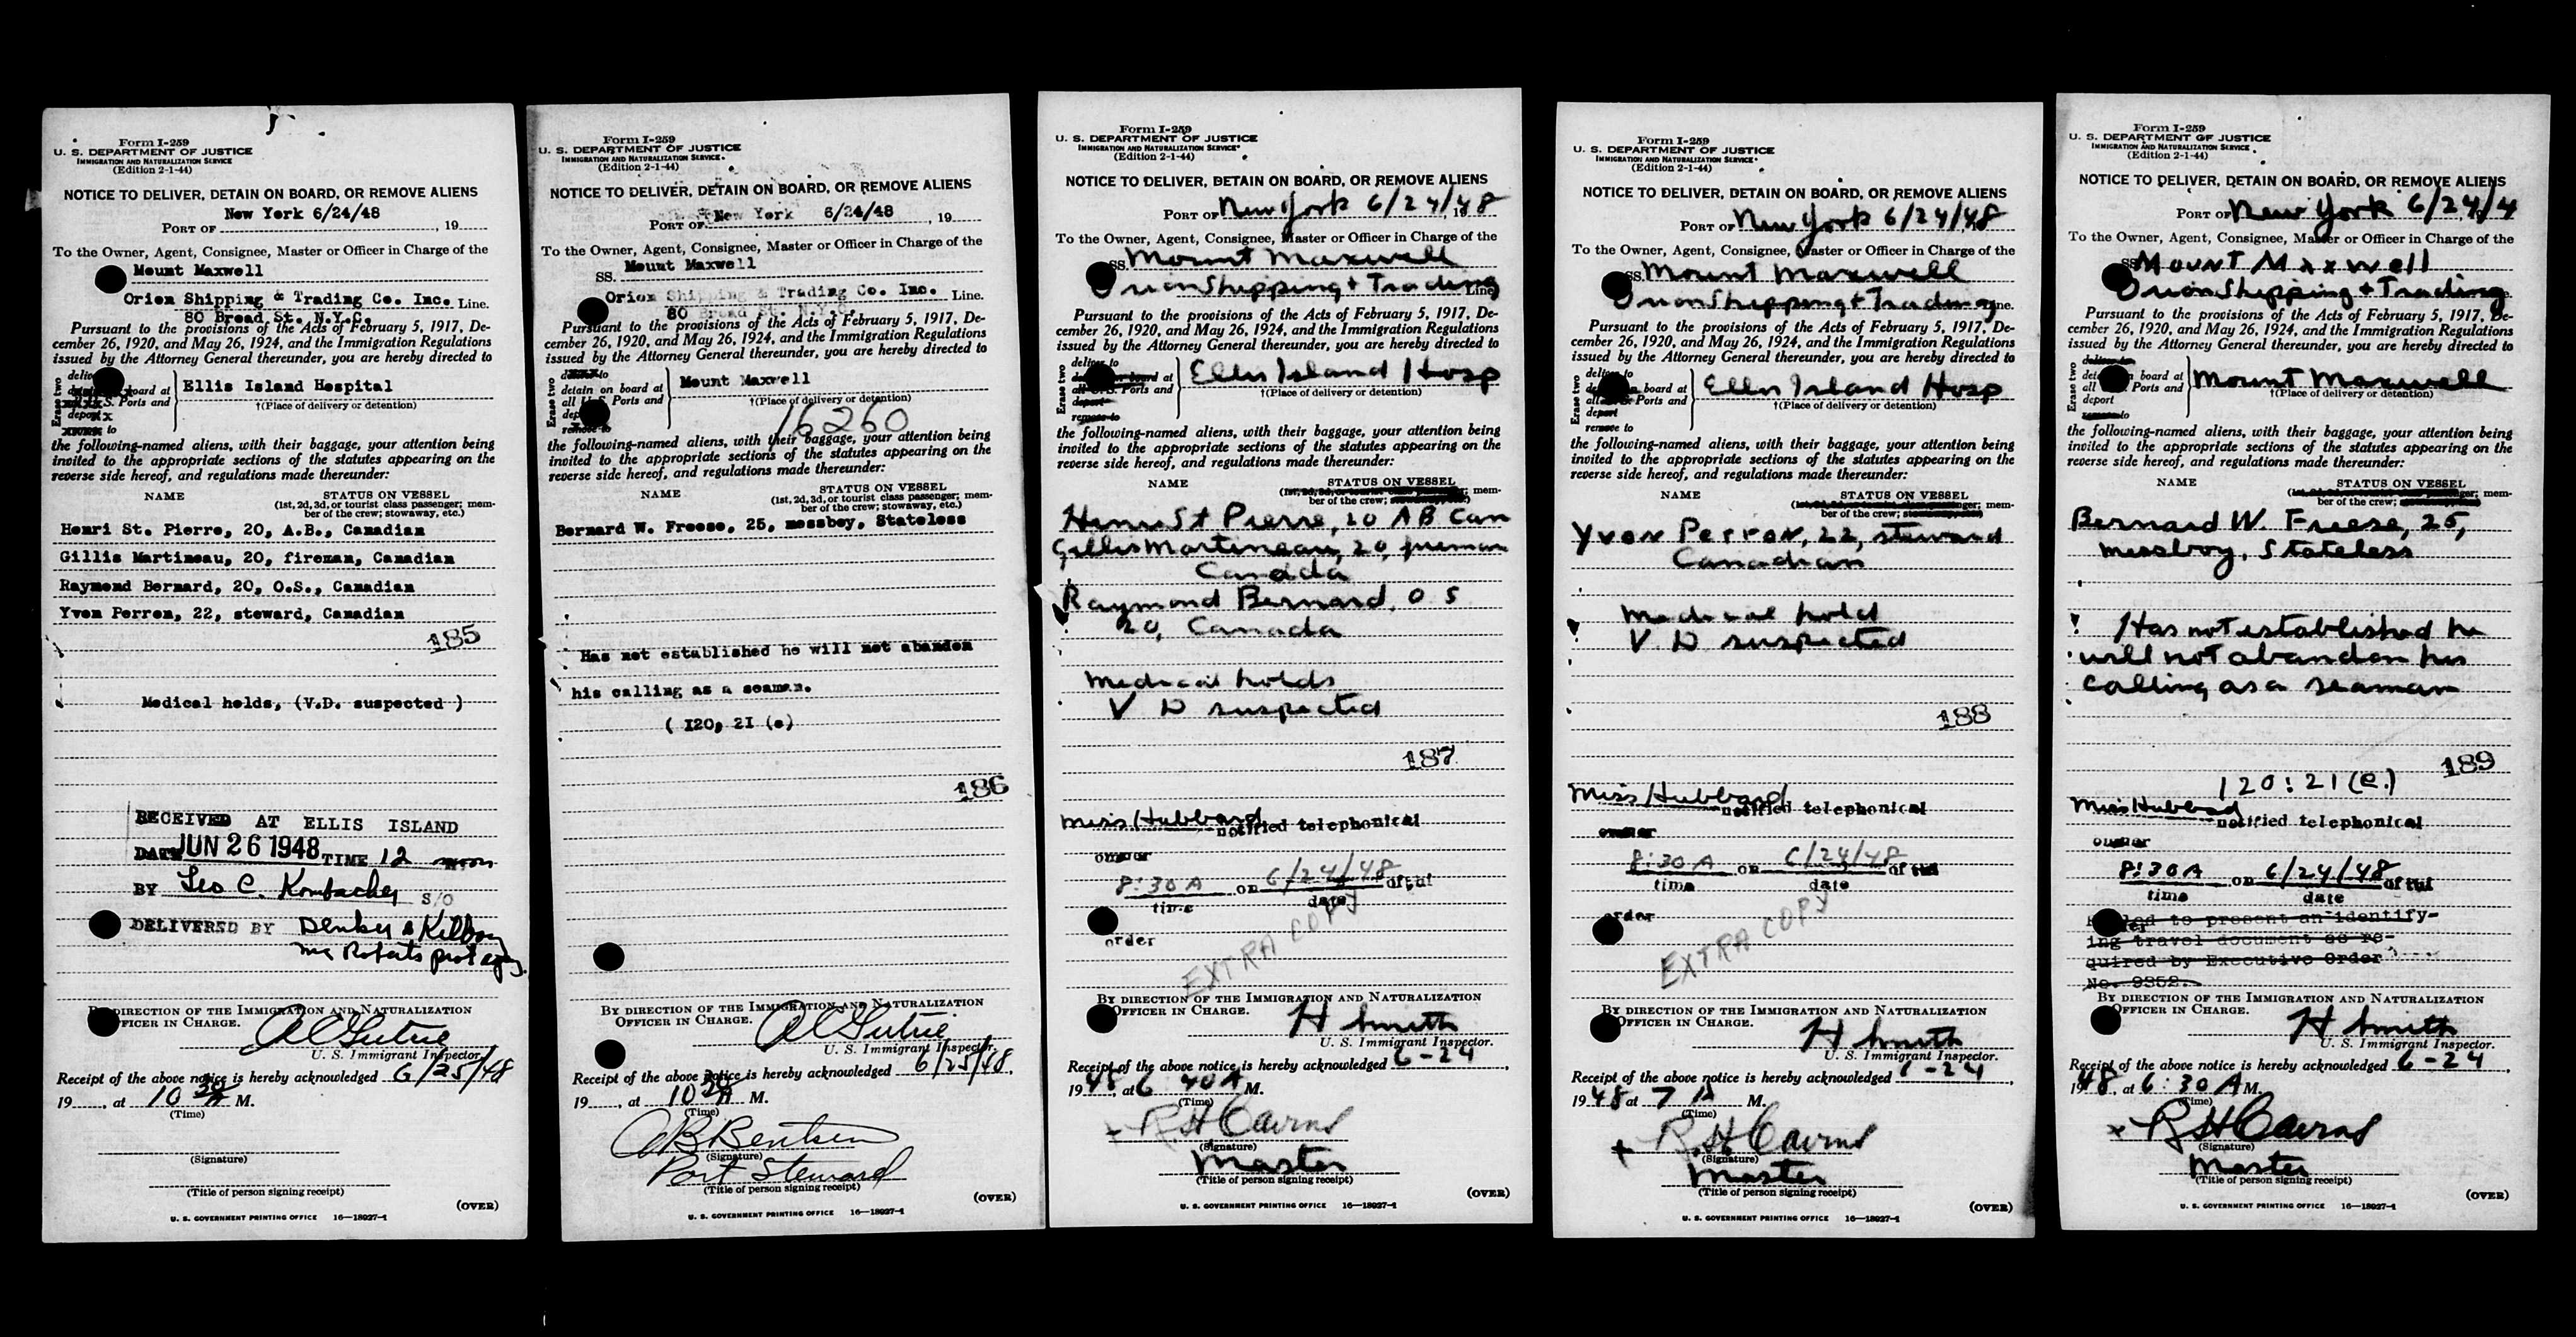 Form I-259
U. S. DEPARTMENT OF JUSTICE
IMMIGRATION AND NATURALIZATION SERVICE
(Edition 2-1-44)
NOTICE TO DELIVER, DETAIN ON BOARD, OR REMOVE ALIENS
New York 6/24/48
PORT OF , 19
To the Owner, Agent, Consignee, Master or Officer in Charge of the
Mount Maxwell
Orion Shipping & Trading Co. Inc. Line.
80 Broad St. N.Y.C.
Pursuant to the provisions of the Acts of February 5, 1917, De-
cember 26, 1920, and May 26, 1924, and the Immigration Regulations
issued by the Attorney General thereunder, you are hereby directed to
Erase two
board at
Ports and
deport
to
Ellis Island Hospital
†(Place of delivery or detention)
the following-named aliens, with their baggage, your attention being
invited to the appropriate sections of the statutes appearing on the
reverse side hereof, and regulations made thereunder:
NAME STATUS ON VESSEL
(1st, 2d, 3d, or tourist class passenger; mem-
ber of the crew; stowaway, etc.)
Henri St. Pierre, 20, A.B., Canadian
Gillis Martineau, 20, fireman, Canadian
Raymond Bernard, 20, O.S., Canadian
Yvon Perron, 22, steward, Canadian
185
Medical holds, (V.D. suspected )
RECEIVED AT ELLIS ISLAND
DATE JUN 26 1948 TIME 12 noon
BY Leo C. S/O
DELIVERED BY
BY DIRECTION OF THE IMMIGRATION AND NATURALIZATION
OFFICER IN CHARGE.
U. S. Immigrant Inspector.
Receipt of the above notice is hereby acknowledged 6/25/48
19 , at 10 30 A M.
(Time)
(Signature)
(Title of person signing receipt)
(OVER)
U. S. GOVERNMENT PRINTING OFFICE 16—18027-1
Form I-259
U. S. DEPARTMENT OF JUSTICE
IMMIGRATION AND NATURALIZATION SERVICE
(Edition 2-1-44)
NOTICE TO DELIVER, DETAIN ON BOARD, OR REMOVE ALIENS
PORT OF New York 6/24/48 , 19
To the Owner, Agent, Consignee, Master or Officer in Charge of the
SS. Mount Maxwell
Orion Shipping & Trading Co. Inc. Line.
80 Broad St. N.Y.C.
Pursuant to the provisions of the Acts of February 5, 1917, De-
cember 26, 1920, and May 26, 1924, and the Immigration Regulations
issued by the Attorney General thereunder, you are hereby directed to
Erase two
to
detain on board at
all U.S. Ports and
remove to
Mount Maxwell
†(Place of delivery or detention)
16260
the following-named aliens, with their baggage, your attention being
invited to the appropriate sections of the statutes appearing on the
reverse side hereof, and regulations made thereunder:
NAME STATUS ON VESSEL
(1st, 2d, 3d, or tourist class passenger; mem-
ber of the crew; stowaway, etc.)
Bernard W. Freese, 25, messboy, Stateless
Has not established he will not abandon
his calling as a seaman.
( I20, 2I (e)
186
BY DIRECTION OF THE IMMIGRATION AND NATURALIZATION
OFFICER IN CHARGE.
U. S. Immigrant Inspector.
Receipt of the above notice is hereby acknowledged 6/25/48.
19 , at 10 30 A M.
(Time)
(Signature)
Port Steward
(Title of person signing receipt)
(OVER)
U. S. GOVERNMENT PRINTING OFFICE 16—18027-1
Form I-259
U. S. DEPARTMENT OF JUSTICE
IMMIGRATION AND NATURALIZATION SERVICE
(Edition 2-1-44)
NOTICE TO DELIVER, DETAIN ON BOARD, OR REMOVE ALIENS
PORT OF New York 6/24/48
To the Owner, Agent, Consignee, Master or Officer in Charge of the
SS. Mount Maxwell
Orion Shipping + Trading Line
Pursuant to the provisions of the Acts of February 5, 1917, De-
cember 26, 1920, and May 26, 1924, and the Immigration Regulations
issued by the Attorney General thereunder, you are hereby directed to
Erase two
deliver to
board at
Ports and
deport
remove to
Ellis Island Hosp
†(Place of delivery or detention)
the following-named aliens, with their baggage, your attention being
invited to the appropriate sections of the statutes appearing on the
reverse side hereof, and regulations made thereunder:
NAME STATUS ON VESSEL
mem-
ber of the crew;
Henri St Pierre, 20 AB Can
Gillis Martineau, 20, fireman
Canada
Raymond Bernard, O S
20, Canada
Medical holds
V D suspected
187
Miss Hubbard notified telephonical
owner
8:30 A on 6/24/48 of this
time date
order
EXTRA COPY
BY DIRECTION OF THE IMMIGRATION AND NATURALIZATION
OFFICER IN CHARGE.
H Smith
U. S. Immigrant Inspector.
Receipt of the above notice is hereby acknowledged 6-24,
1948, at 6 40 A M.
(Time)
R H Cairns
(Signature)
Master
(Title of person signing receipt)
(OVER)
U. S. GOVERNMENT PRINTING OFFICE 16—18027-1
Form I-259
U. S. DEPARTMENT OF JUSTICE
IMMIGRATION AND NATURALIZATION SERVICE
(Edition 2-1-44)
NOTICE TO DELIVER, DETAIN ON BOARD, OR REMOVE ALIENS
PORT OF New York 6/24/48
To the Owner, Agent, Consignee, Master or Officer in Charge of the
SS. Mount Maxwell
Orion Shipping + Trading Line.
Pursuant to the provisions of the Acts of February 5, 1917, De-
cember 26, 1920, and May 26, 1924, and the Immigration Regulations
issued by the Attorney General thereunder, you are hereby directed to
Erase two
deliver to
board at
all Ports and
deport
remove to
Ellis Island Hosp
†(Place of delivery or detention)
the following-named aliens, with their baggage, your attention being
invited to the appropriate sections of the statutes appearing on the
reverse side hereof, and regulations made thereunder:
NAME STATUS ON VESSEL
mem-
ber of the crew;
Yvon Perron, 22, steward
Canadian
Medical hold
V D suspected
188
Miss Hubbard notified telephonical
owner
8:30 A on 6/24/48 of this
time date
order
EXTRA COPY
BY DIRECTION OF THE IMMIGRATION AND NATURALIZATION
OFFICER IN CHARGE.
H Smith
U. S. Immigrant Inspector.
Receipt of the above notice is hereby acknowledged 6-24,
1948 at 7 A M.
(Time)
R H Cairns
(Signature)
Master
(Title of person signing receipt)
(OVER)
U. S. GOVERNMENT PRINTING OFFICE 16—18027-1
Form I-259
U. S. DEPARTMENT OF JUSTICE
IMMIGRATION AND NATURALIZATION SERVICE
(Edition 2-1-44)
NOTICE TO DELIVER, DETAIN ON BOARD, OR REMOVE ALIENS
PORT OF New York 6/24/4
To the Owner, Agent, Consignee, Master or Officer in Charge of the
SS Mount Maxwell
Orion Shipping + Trading
Pursuant to the provisions of the Acts of February 5, 1917, De-
cember 26, 1920, and May 26, 1924, and the Immigration Regulations
issued by the Attorney General thereunder, you are hereby directed to
Erase two
deliver to
board at
all Ports and
deport
remove to
Mount Maxwell
†(Place of delivery or detention)
the following-named aliens, with their baggage, your attention being
invited to the appropriate sections of the statutes appearing on the
reverse side hereof, and regulations made thereunder:
NAME STATUS ON VESSEL
mem-
ber of the crew;
Bernard W. Freese, 25,
messboy, Stateless
Has not established he
will not abandon his
calling as a seaman
189
120:21(e)
Miss Hubbard notified telephonical
owner
8:30 A on 6/24/48 of this
time date
to present an identify-
ing travel document as re-
quired by Executive Order
No. 9352.
BY DIRECTION OF THE IMMIGRATION AND NATURALIZATION
OFFICER IN CHARGE.
H Smith
U. S. Immigrant Inspector.
Receipt of the above notice is hereby acknowledged 6-24,
1948, at 6:30 A M.
(Time)
R H Cairns
(Signature)
Master
(Title of person signing receipt)
(OVER)
U. S. GOVERNMENT PRINTING OFFICE 16—18027-1